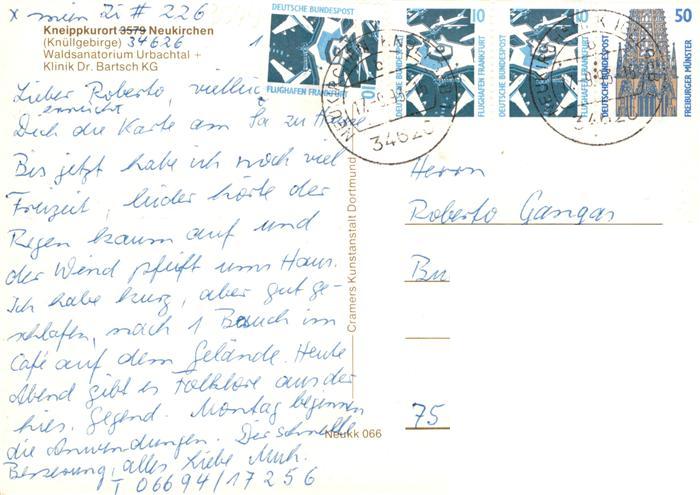 x mein Zi # 226
Kneippkurort 3579 Neukirchen
(Knüllgebirge) 34626
Waldsanatorium Urbachtal +
Klinik Dr. Bartsch KG
Lieber Roberto, vielleicht
erreicht
Dich die Karte am Sa zu Hause
Bis jetzt habe ich noch viel
Freizeit, leider hörte der
Regen kaum auf und
der Wind pfeift ums Haus.
Ich habe kurz, aber gut ge-
schlafen, nach 1 Besuch im
Café auf dem Gelände. Heute
Abend gibt es Folklore aus der
hies. Gegend. Montag beginnen
die Anwendungen. Dir schnelle
Besserung, alles Liebe
T 06694/17256
Cramers Kunstanstalt Dortmund
Neukk 066
DEUTSCHE BUNDESPOST
10
FLUGHAFEN FRANKFURT
10
DEUTSCHE BUNDESPOST
FLUGHAFEN FRANKFURT
10
DEUTSCHE BUNDESPOST
FLUGHAFEN FRANKFURT
50
DEUTSCHE BUNDESPOST
FREIBURGER MÜNSTER
34626
34626
Herrn
Roberto Gangas
Bu
75